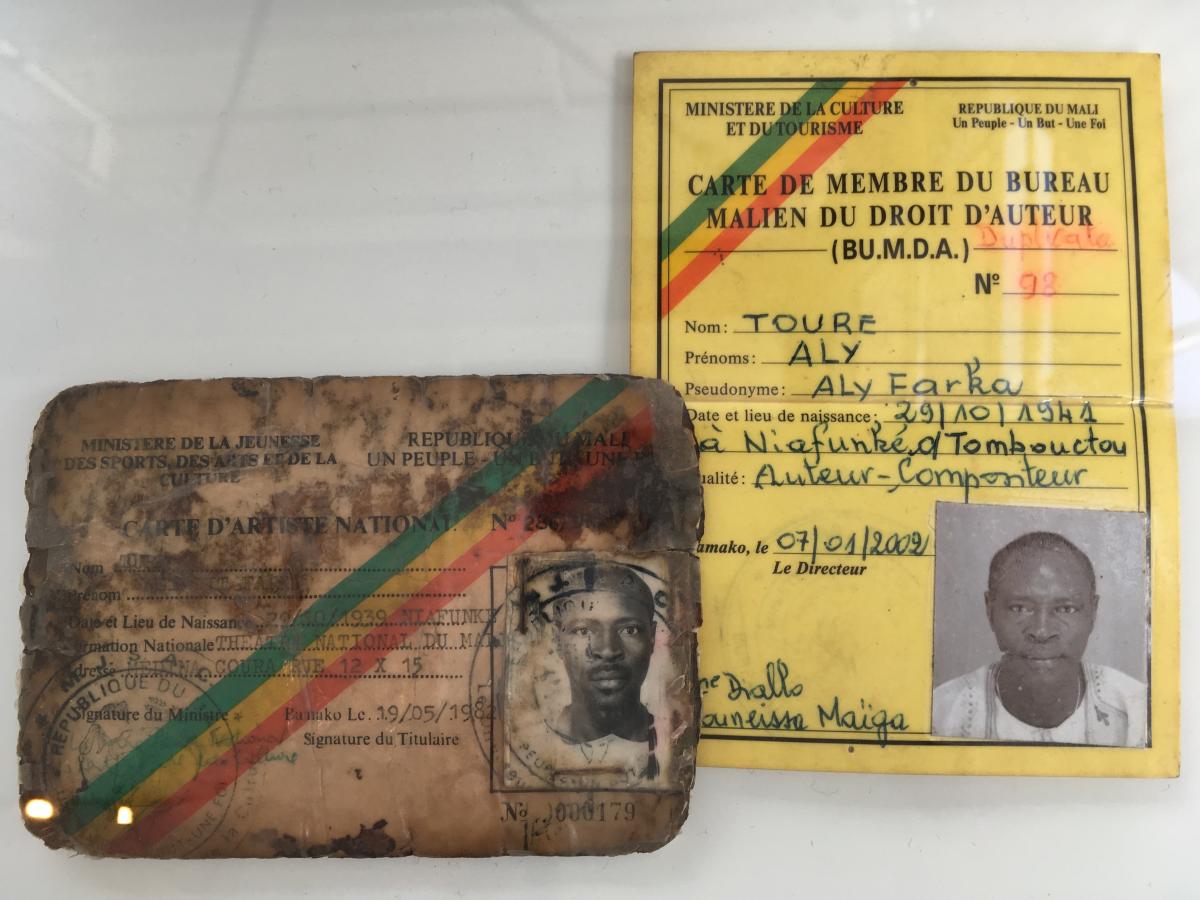 MINISTERE DE LA CULTURE
ET DU TOURISME
REPUBLIQUE DU MALI
Un Peuple - Un But - Une Foi
CARTE DE MEMBRE DU BUREAU
MALIEN DU DROIT D'AUTEUR
(BU.M.D.A.) Duplicata
Nº 98
Nom : TOURE
Prénoms : ALY
Pseudonyme : ALY Farka
Date et lieu de naissance : 29/10/1941
à Niafunké d/Tombouctou
ualité : Auteur-Compositeur
amako, le 07/01/2002
Le Directeur
me Diallo
ouneissa Maïga
MINISTERE DE LA JEUNESSE
DES SPORTS, DES ARTS ET DE LA
CULTURE
REPUBLIQUE DU MALI
UN PEUPLE - UN BUT - UNE
CARTE D'ARTISTE NATIONAL Nº
Nom
Prénom
Date et Lieu de Naissance 29/10/1939 NIAFUNKE
ormation Nationale THEATRE NATIONAL DU MA
dresse MEDINA COURA RUE 12 X 15
REPUBLIQUE DU
Signature du Ministre
Bamako Le. 19/05/1982
Signature du Titulaire
UNE FOI
No 000179